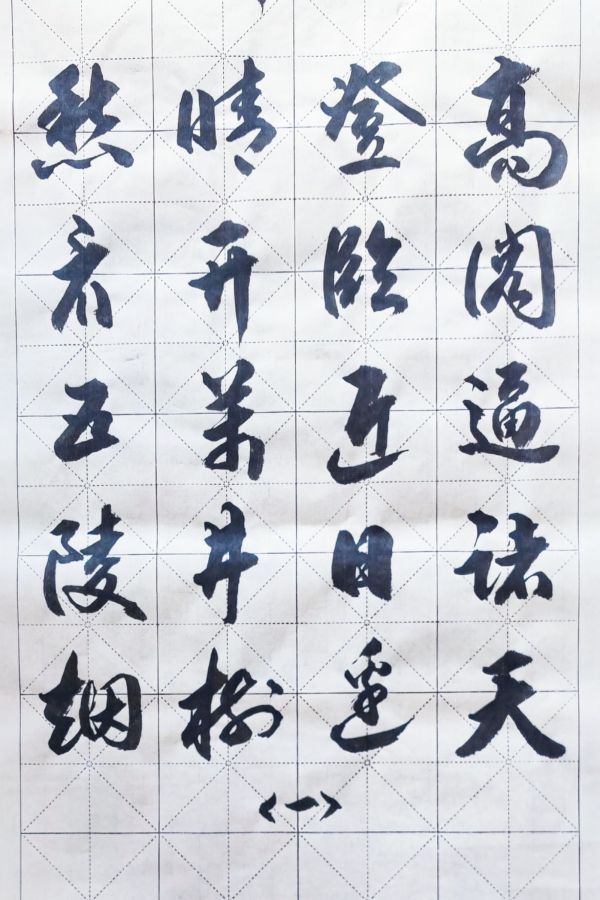 高阁逼诸天
登臨近日邊
晴开萬井树
愁看五陵烟
<一>